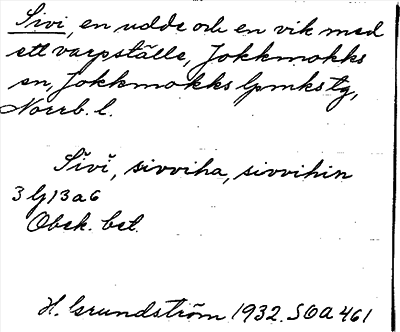 Sivi, en udde och en vik med
ett varpställe, Jokkmokks
sn, Jokkmokks lpmkstg,
Norrb. l.
Sĭvĭ, sivviha, sivvihin
3 lj 13 a 6
Obek. bet.
H. Grundström 1932. SOA 461